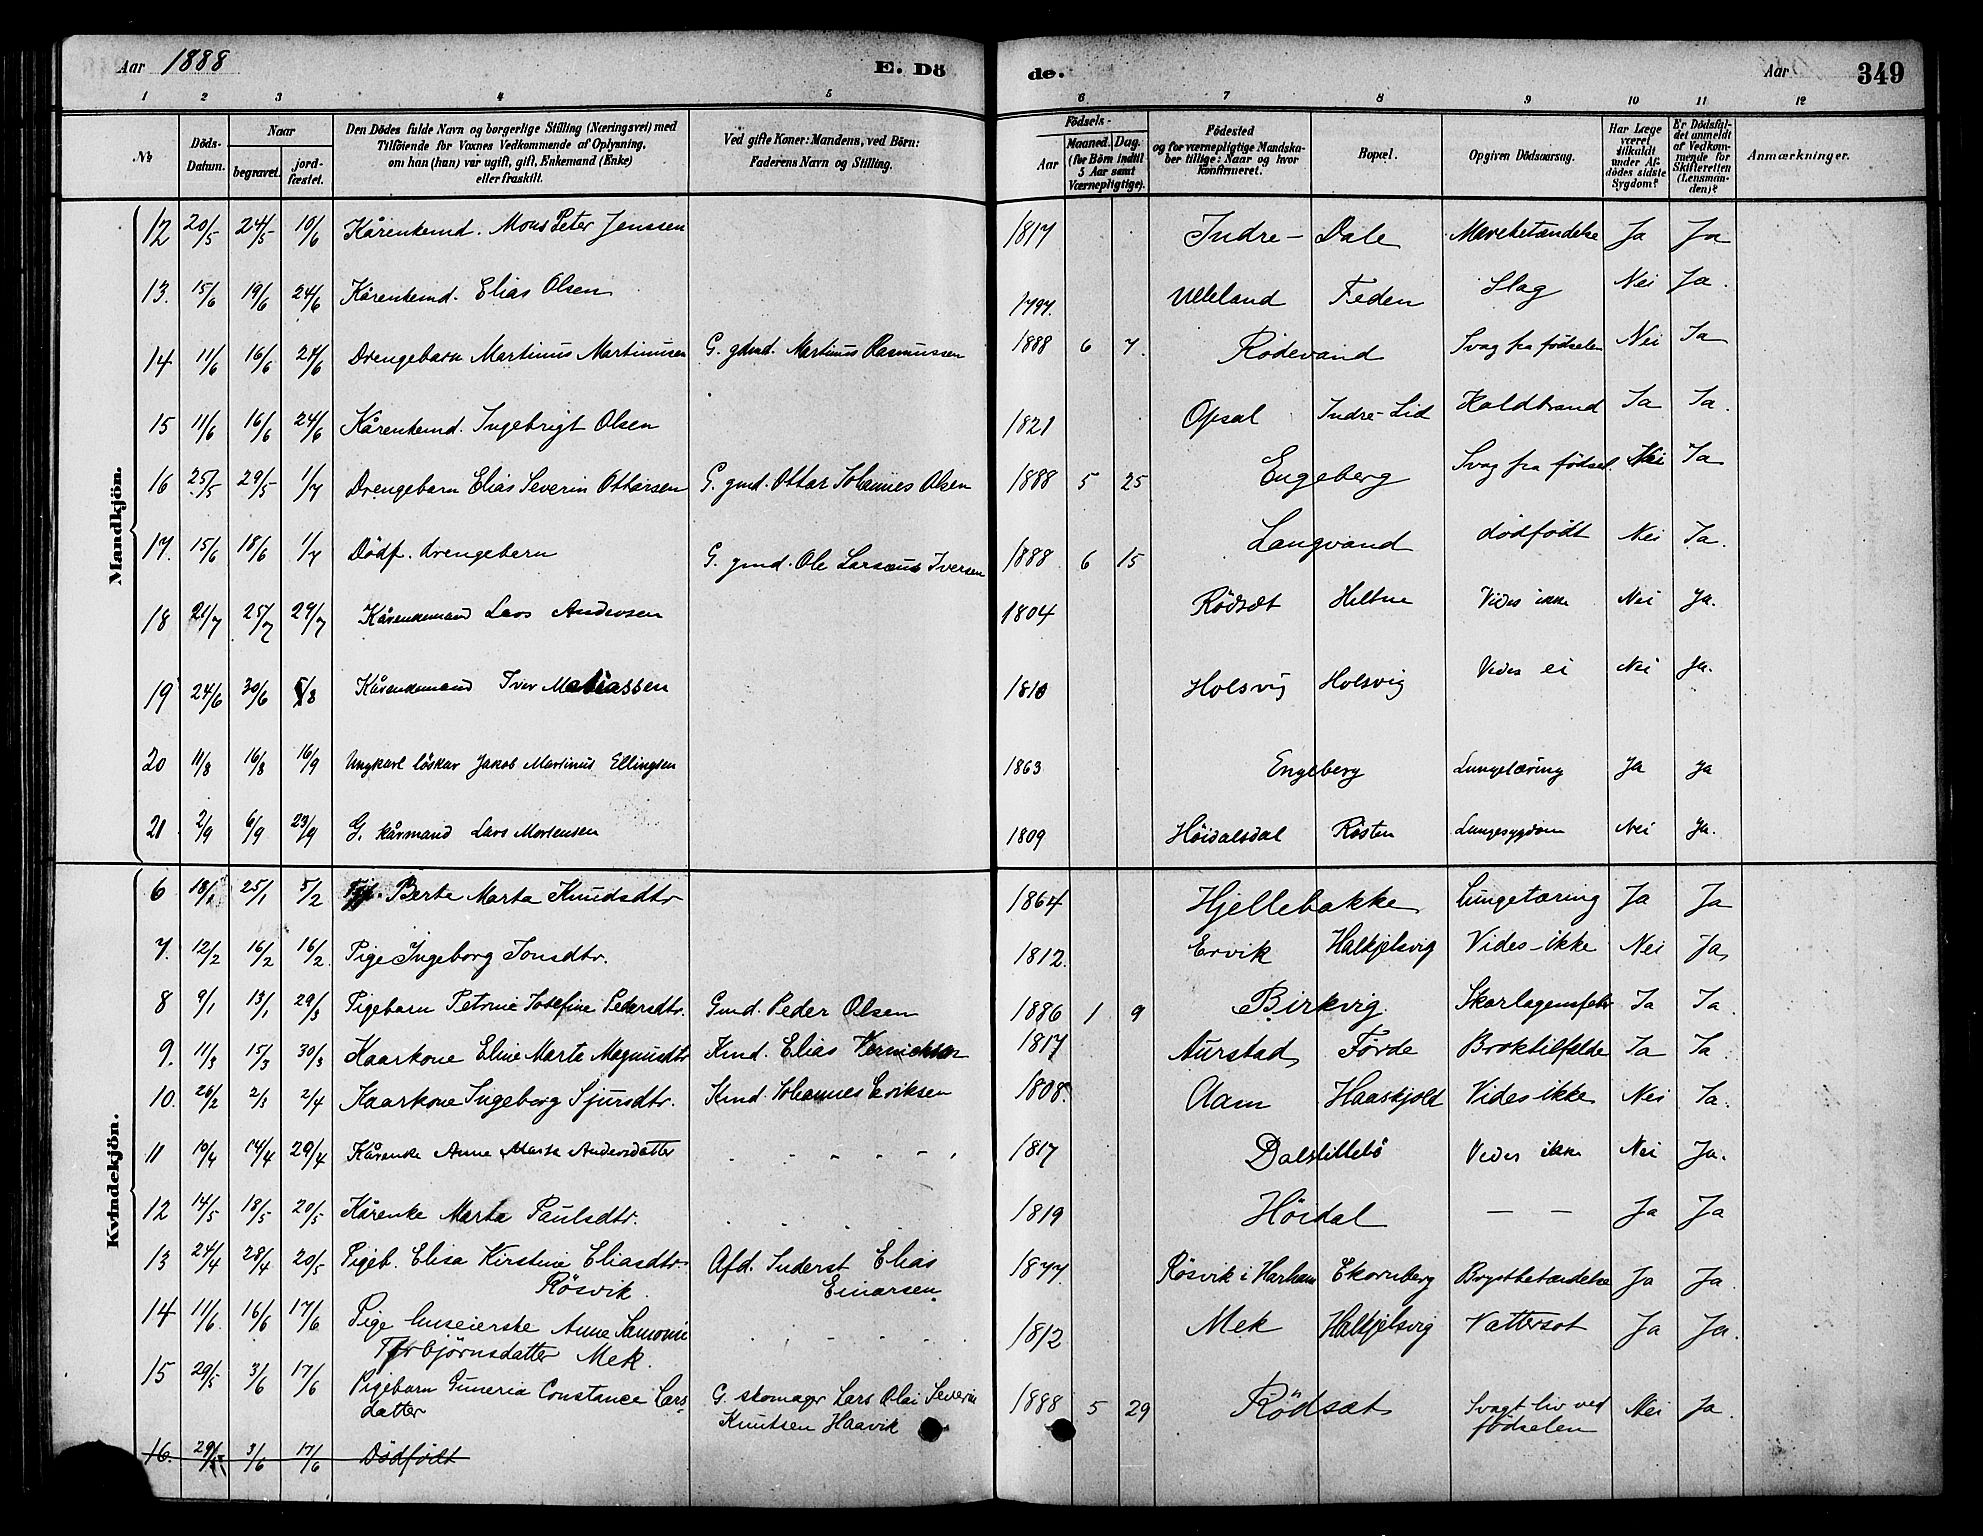 Aar 1888 E. Dö de. Aar 349
1 2 3 4 5 6 7 8 9 10 11 12
No Döds-Datum. Naar begravet. jordfæstet. Den Dödes fulde Navn og borgerlige Stilling (Næringsvei) med Tilföiende for Voxnes Vedkommende af Oplysning, om han (hun) var ugift, gift, Enkemand (Enke) eller fraskilt. Ved gifte Koner: Mandens, ved Börn: Faderens Navn og Stilling. Födsels- Aar Maaned. Dag. (for Börn indtil 5 Aar samt Værnepligtige). Födested og for værnepligtige Mandskaber tillige: Naar og hvor konfirmeret. Bopæl. Opgiven Dödsaarsag. Har Læge været tilkaldt under Afdödes sidste Sygdom? Er Dödsfaldet anmeldt af Vedkommende for Skifteretten (Lensmanden)? Anmærkninger.
Mandkjön.
12 20/5 24/5 10/6 Kårenkemd. Mons Peter Jenssen 1817 Indre- Dale Mavebetændelse Ja Ja
13. 15/6 19/6 24/6 Kårenkemd. Elias Olsen 1797. Ulleland Feden Slag Nei Ja.
14 11/6 16/6 24/6 Drengebarn Martinus Martinusen G. gdmd. Martinus Rasmussen 1888 6 7. Rödevand Svag fra födselen Nei Ja
15 11/6 16/6 24/6 Kårenkemd. Ingebrigt Olsen 1821 Opsal Indre-Lid Koldbrand Ja Ja.
16 25/5 29/5 1/7 Drengebarn Elias Severin Ottarsen G. gmd. Ottar Johannes Olsen 1888 5 25 Engeberg Svag fra födsel. Nei Ja
17. 15/6 18/6 1/7 Dödf. drengebern G. gmd. Ole Larsæus Iversen 1888. 6 15 Langvand dödfødt Nei Ja.
18 21/7 25/7 29/7 Kårenkemand Lars Andersen 1804 Rödsæt Heltne Vides ikke Nei Ja.
19 24/6 30/6 5/8 Kårenkemand Iver Matiassen 1810 Holsvig Holsvig Vides ei Nei Ja.
20 11/8 16/8 16/9 Ungkarl löskar Jakob Martinus Ellingsen 1863 Engeberg Lungetæring Ja Ja
21 2/9 6/9 23/9 G. kårmand Lars Mortensen 1809 Höidalsdal Rösten Lungesygdom Nei Ja.
Kvindekjön.
6 18/1 25/1 5/2 Berte Marta Knudsdtr 1864 Hjellebakke Lungetæring Ja Ja
7. 12/2 16/2 16/2 Pige Ingeborg Jonsdtr. 1812. Ervik Halkjelsvig Vides-ikke Nei Ja
8 9/1 13/1 29/3 Pigebarn Petrine Josefine Pedersdtr. Gmd. Peder Olsen 1886 1 9 Birkvig Skarlagensfeb. Ja Ja.
9. 11/3 15/3 30/3 Kaarkone Eline Marte Magnusdtr Kmd. Elias 1817 Aurstad Förde Broktilfælde Ja Ja
10. 26/2 2/3 2/4 Kaarkone Ingeborg Sjursdtr. Kmd. Johannes Eriksen 1808. Aam Haaskjold Vides ikke Nei Ja.
11 10/4 14/4 29/4 Kårenke Anne Marta Andersdatter - - - - - - 1817 Dalslillebö Vides ikke Nei Ja.
12 14/5 18/5 20/5 Kårenke Marta Paulsdtr. - - - - - 1819 Höidal — — Ja Ja
13 24/4 28/4 20/5 Pigeb. Elisa Kirstine Eliasdtr. Afd. Inderst Elias 1877 Rösvik i Harham Ekornberg Brystbetændelse Ja Ja.
Rösvik. Einarsen.
14 11/6. 16/6 17/6 Pige huseierske Anne Samomie - - - - 1812 Mek Halkjelsvig Vattersot Ja Ja.
Torbjörnsdatter Mek.
15 29/5 3/6 17/6 Pigebarn Guneria Constance Lars- G. skomagr Lars Olai Severin 1888 5 29 Rödsæt Svagt liv ved Nei Ja.
datter Knutsen Haavik födselen
16. 29/5 3/6 17/6 Dödfödt